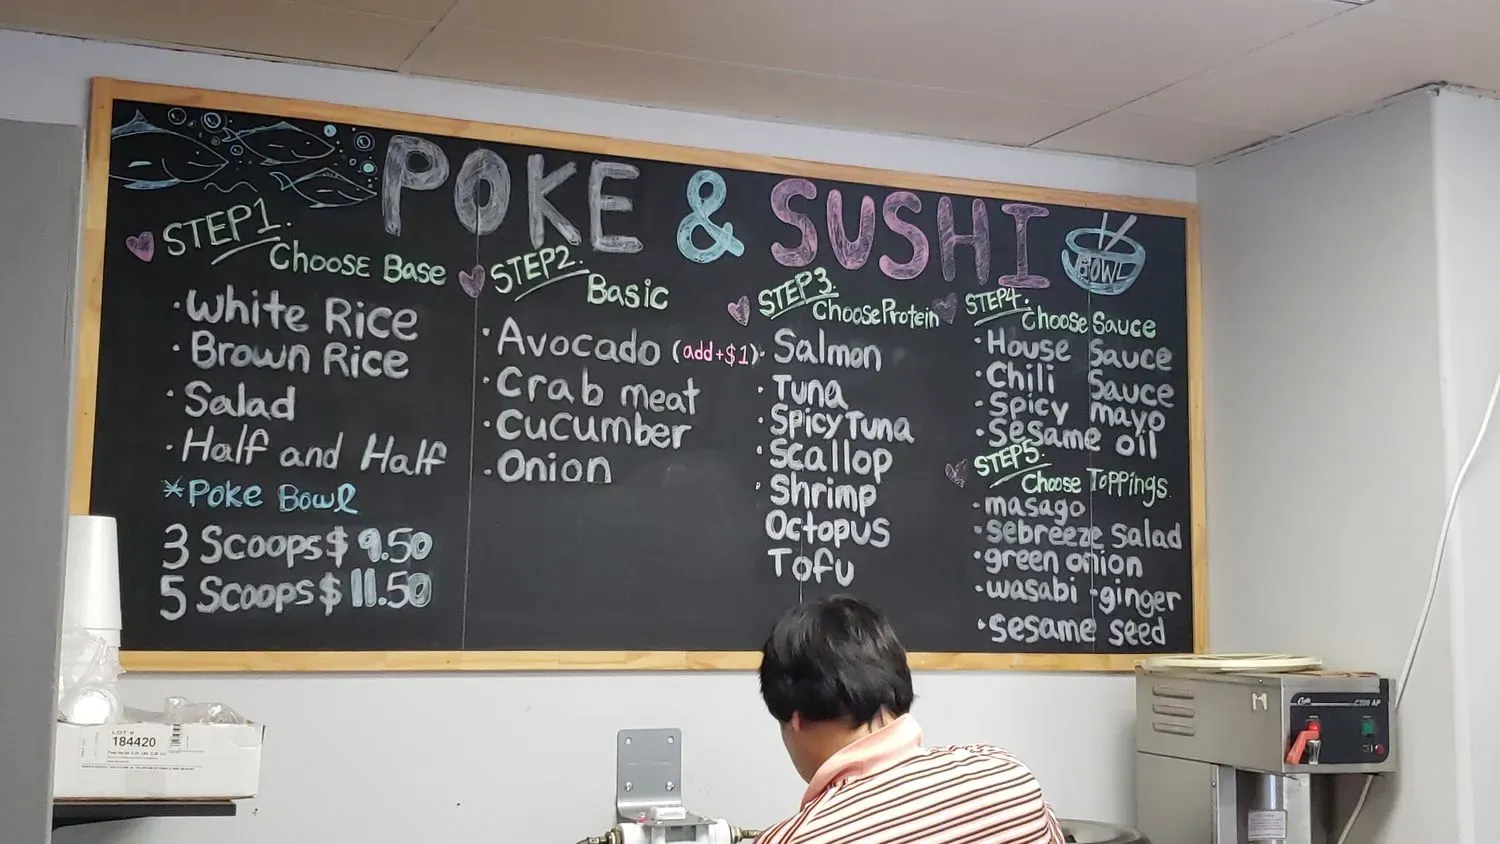 POKE & SUSHI
BOWL
STEP1.
Choose Base
·White Rice
·Brown Rice
·Salad
·Half and Half
*Poke Bowl
3 Scoops $ 9.50
5 Scoops $ 11.50
STEP2.
Basic
·Avocado (add+$1)
·Crab meat
·Cucumber
·Onion
STEP3.
Choose Protein
·Salmon
·Tuna
·Spicy Tuna
·Scallop
·Shrimp
Octopus
Tofu
STEP4.
Choose Sauce
·House Sauce
·Chili Sauce
·Spicy mayo
·Sesame oil
STEP5.
Choose Toppings
·masago
·sebreeze salad
·green onion
·wasabi ·ginger
·sesame seed
LOT #
184420
Curtis C500 AP